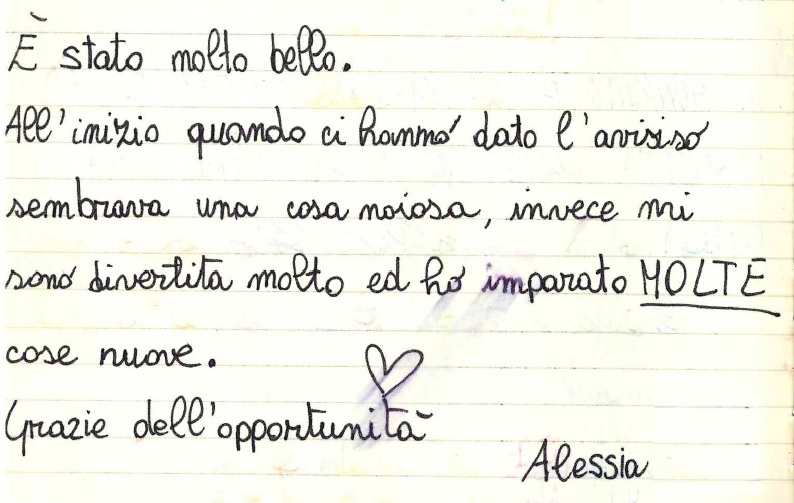 È stato molto bello.
All'inizio quando ci hanno dato l'avisiso
sembrava una cosa noiosa, invece mi
sono divertita molto ed ho imparato MOLTE
cose nuove.
Grazie dell'opportunità
Alessia